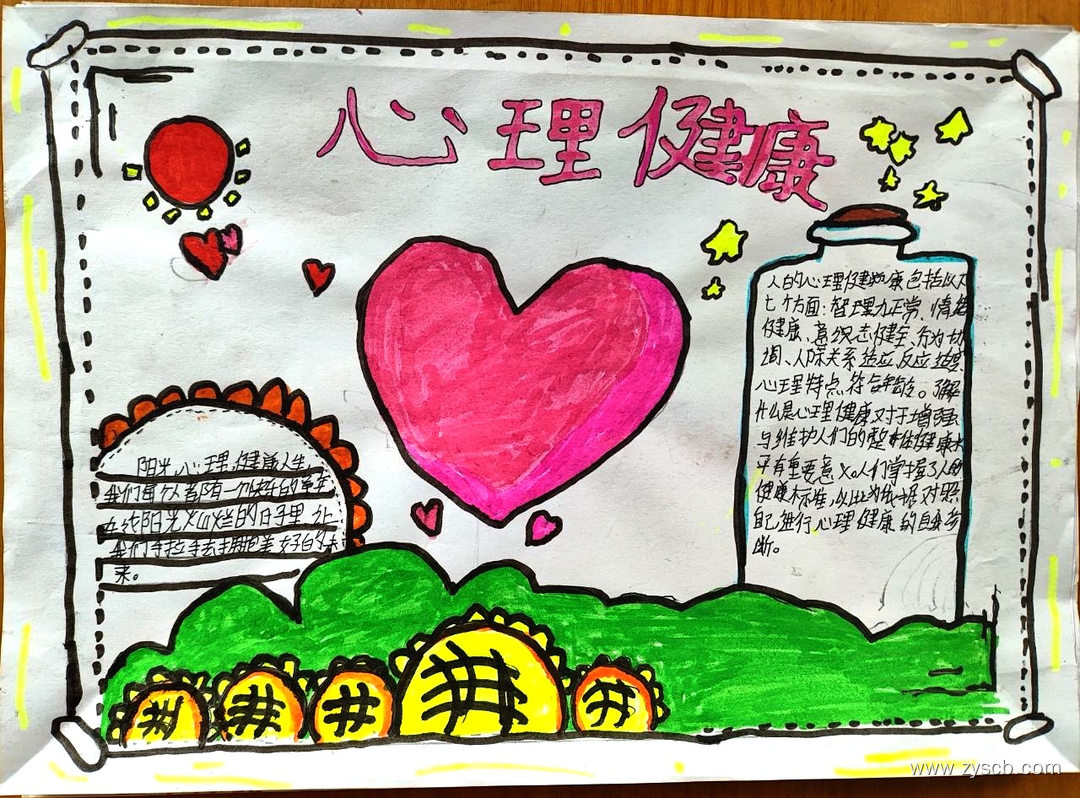 心理健康
人的心理健康包括以下
七个方面：智理力正常、情绪
健康、意织志健全、行为协
调、人际关系适应、反应适度
心理特点符合年龄。了解
什么是心理健康对于增强
与维护人们的整体健康水
平有重要意义。人们掌握了人的
健康标准，以此为依据对照
自己进行心理健康的自我诊
断。
阳光心理，健康人生，
我们每个人都有一个快乐的童年
在线阳光灿烂的日子里，让
我们手拉手去拥抱美好的未
来。
www.zyscb.com